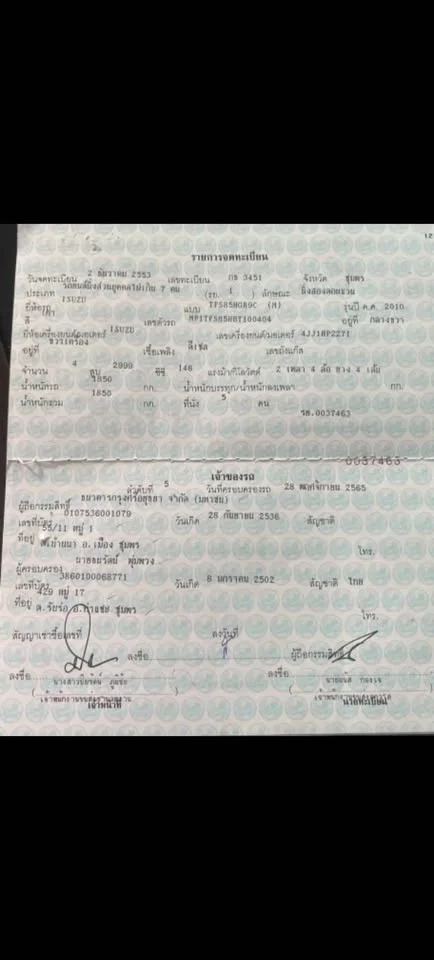 12
รายการจดทะเบียน
วันจดทะเบียน 2 ธันวาคม 2553 เลขทะเบียน กร 3451 จังหวัด ชุมพร
ประเภท รถยนต์นั่งส่วนบุคคลไม่เกิน 7 คน (รย. 1 ) ลักษณะ นั่งสองตอนท้าย
ยี่ห้อรถ ISUZU แบบ TFS85HGR9C (M) รุ่นปี ค.ศ. 2010
สี เลขตัวรถ MP1TFS85HBT100404 อยู่ที่ กลางขวา
ยี่ห้อเครื่องยนต์/มอเตอร์ ISUZU เลขเครื่องยนต์/มอเตอร์ 4JJ1HP2271
อยู่ที่ ขวาเครื่อง เชื้อเพลิง ดีเซล เลขถังแก๊ส
จำนวน 4 สูบ 2999 ซีซี 146 แรงม้า/กิโลวัตต์ 2 เพลา 4 ล้อ ยาง 4 เส้น
น้ำหนักรถ 1850 กก. น้ำหนักบรรทุก/น้ำหนักลงเพลา กก.
น้ำหนักรวม 1850 กก. ที่นั่ง 5 คน
รธ.0037463
0037463
เจ้าของรถ
ลำดับที่ 5 วันที่ครอบครองรถ 28 พฤศจิกายน 2565
ผู้ถือกรรมสิทธิ์ ธนาคารกรุงศรีอยุธยา จำกัด (มหาชน)
เลขที่บัตร 0107536001079 วันเกิด 28 กันยายน 2536 สัญชาติ
ที่อยู่ 55/11 หมู่ 1
อ.เมือง ชุมพร โทร.
ผู้ครอบครอง
เลขที่บัตร 3860100068771 วันเกิด 8 มกราคม 2502 สัญชาติ ไทย
ที่อยู่ 429 หมู่ 17
ต.รับร่อ อ.ท่าแซะ ชุมพร โทร.
สัญญาเช่าซื้อเลขที่ ลงวันที่
ลงชื่อ ผู้ถือกรรมสิทธิ์
ลงชื่อ ลงชื่อ
เจ้าหน้าที่ นายทะเบียน